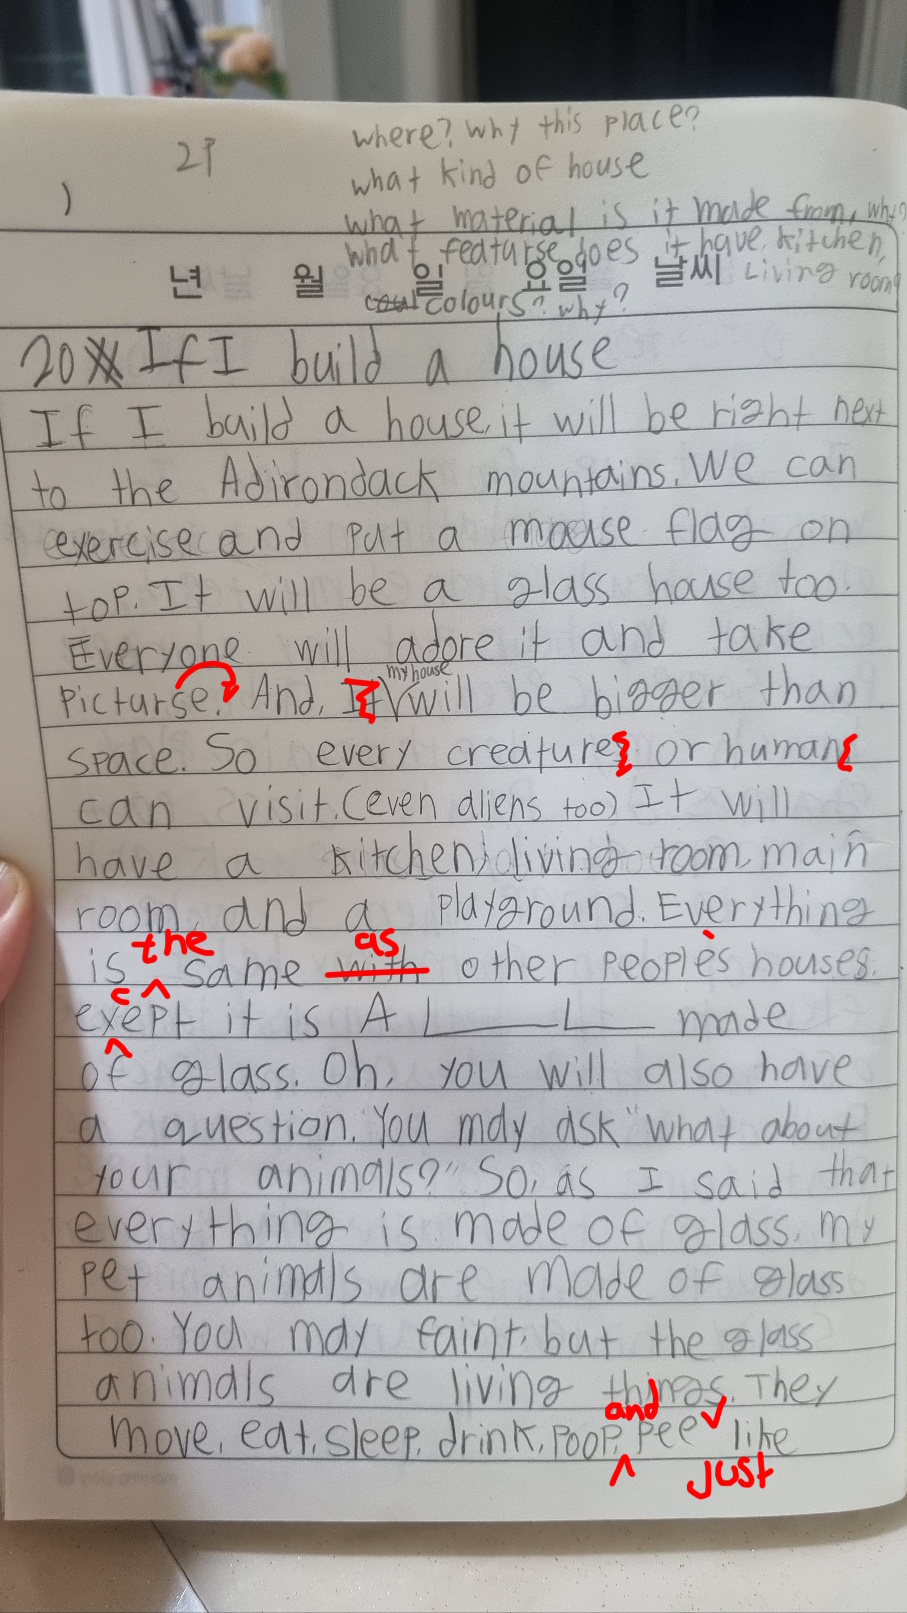 2P
where? why this place?
what kind of house
)
what material is it made from, why?
what featurse does it have, kitchen,
년 월 일 요일 날씨 Living room
colours? why?
20XX If I build a house
If I build a house, it will be right next
to the Adirondack mountains. We can
exercise and put a mouse flag on
top. It will be a glass house too.
Everyone will adore it and take
my house
picturse. And, It will be bigger than
space. So every creatures or humans
can visit. (even aliens too) It will
have a kitchen, living room, main
room and a playground. Everything
the as
is same with other people's houses.
c
exept it is A L L made
of glass. Oh, you will also have
a question. You may ask "what about
your animals?" So, as I said that
everything is made of glass, my
pet animals are made of glass
too. You may faint, but the glass
animals are living things. They
and
move, eat, sleep, drink, poop, pee like
just